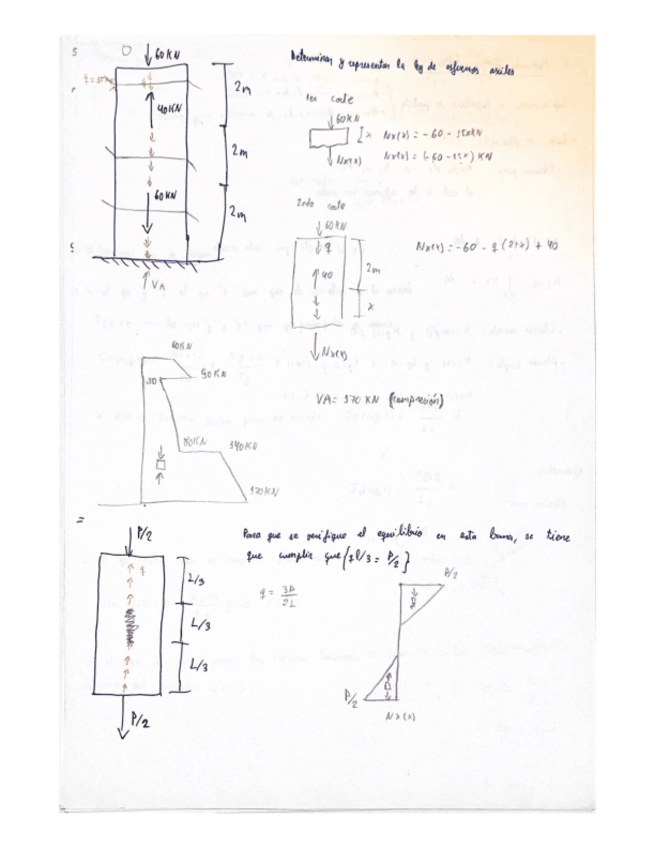 60KN
Determinar y representar la ley de esfuerzos axiles
2m
40KN
1er corte
60KN
x
Nx(x) = -60 - 15xKN
Nx(x)
Nx(x) = (-60-15x) KN
2m
60KN
2m
2ndo corte
60KN
q
40
2m
x
Nx(x) = -60 - q (2+x) + 40
VA
Nx(x)
60KN
90KN
50
VA = 170 KN (compresión)
80KN
140KN
170KN
P/2
Para que se verifique el equilibrio en esta barra, se tiene
que cumplir que {q l/3 = P/2}
q
L/3
L/3
L/3
q = 3P/2L
P/2
P/2
Nx(x)
P/2